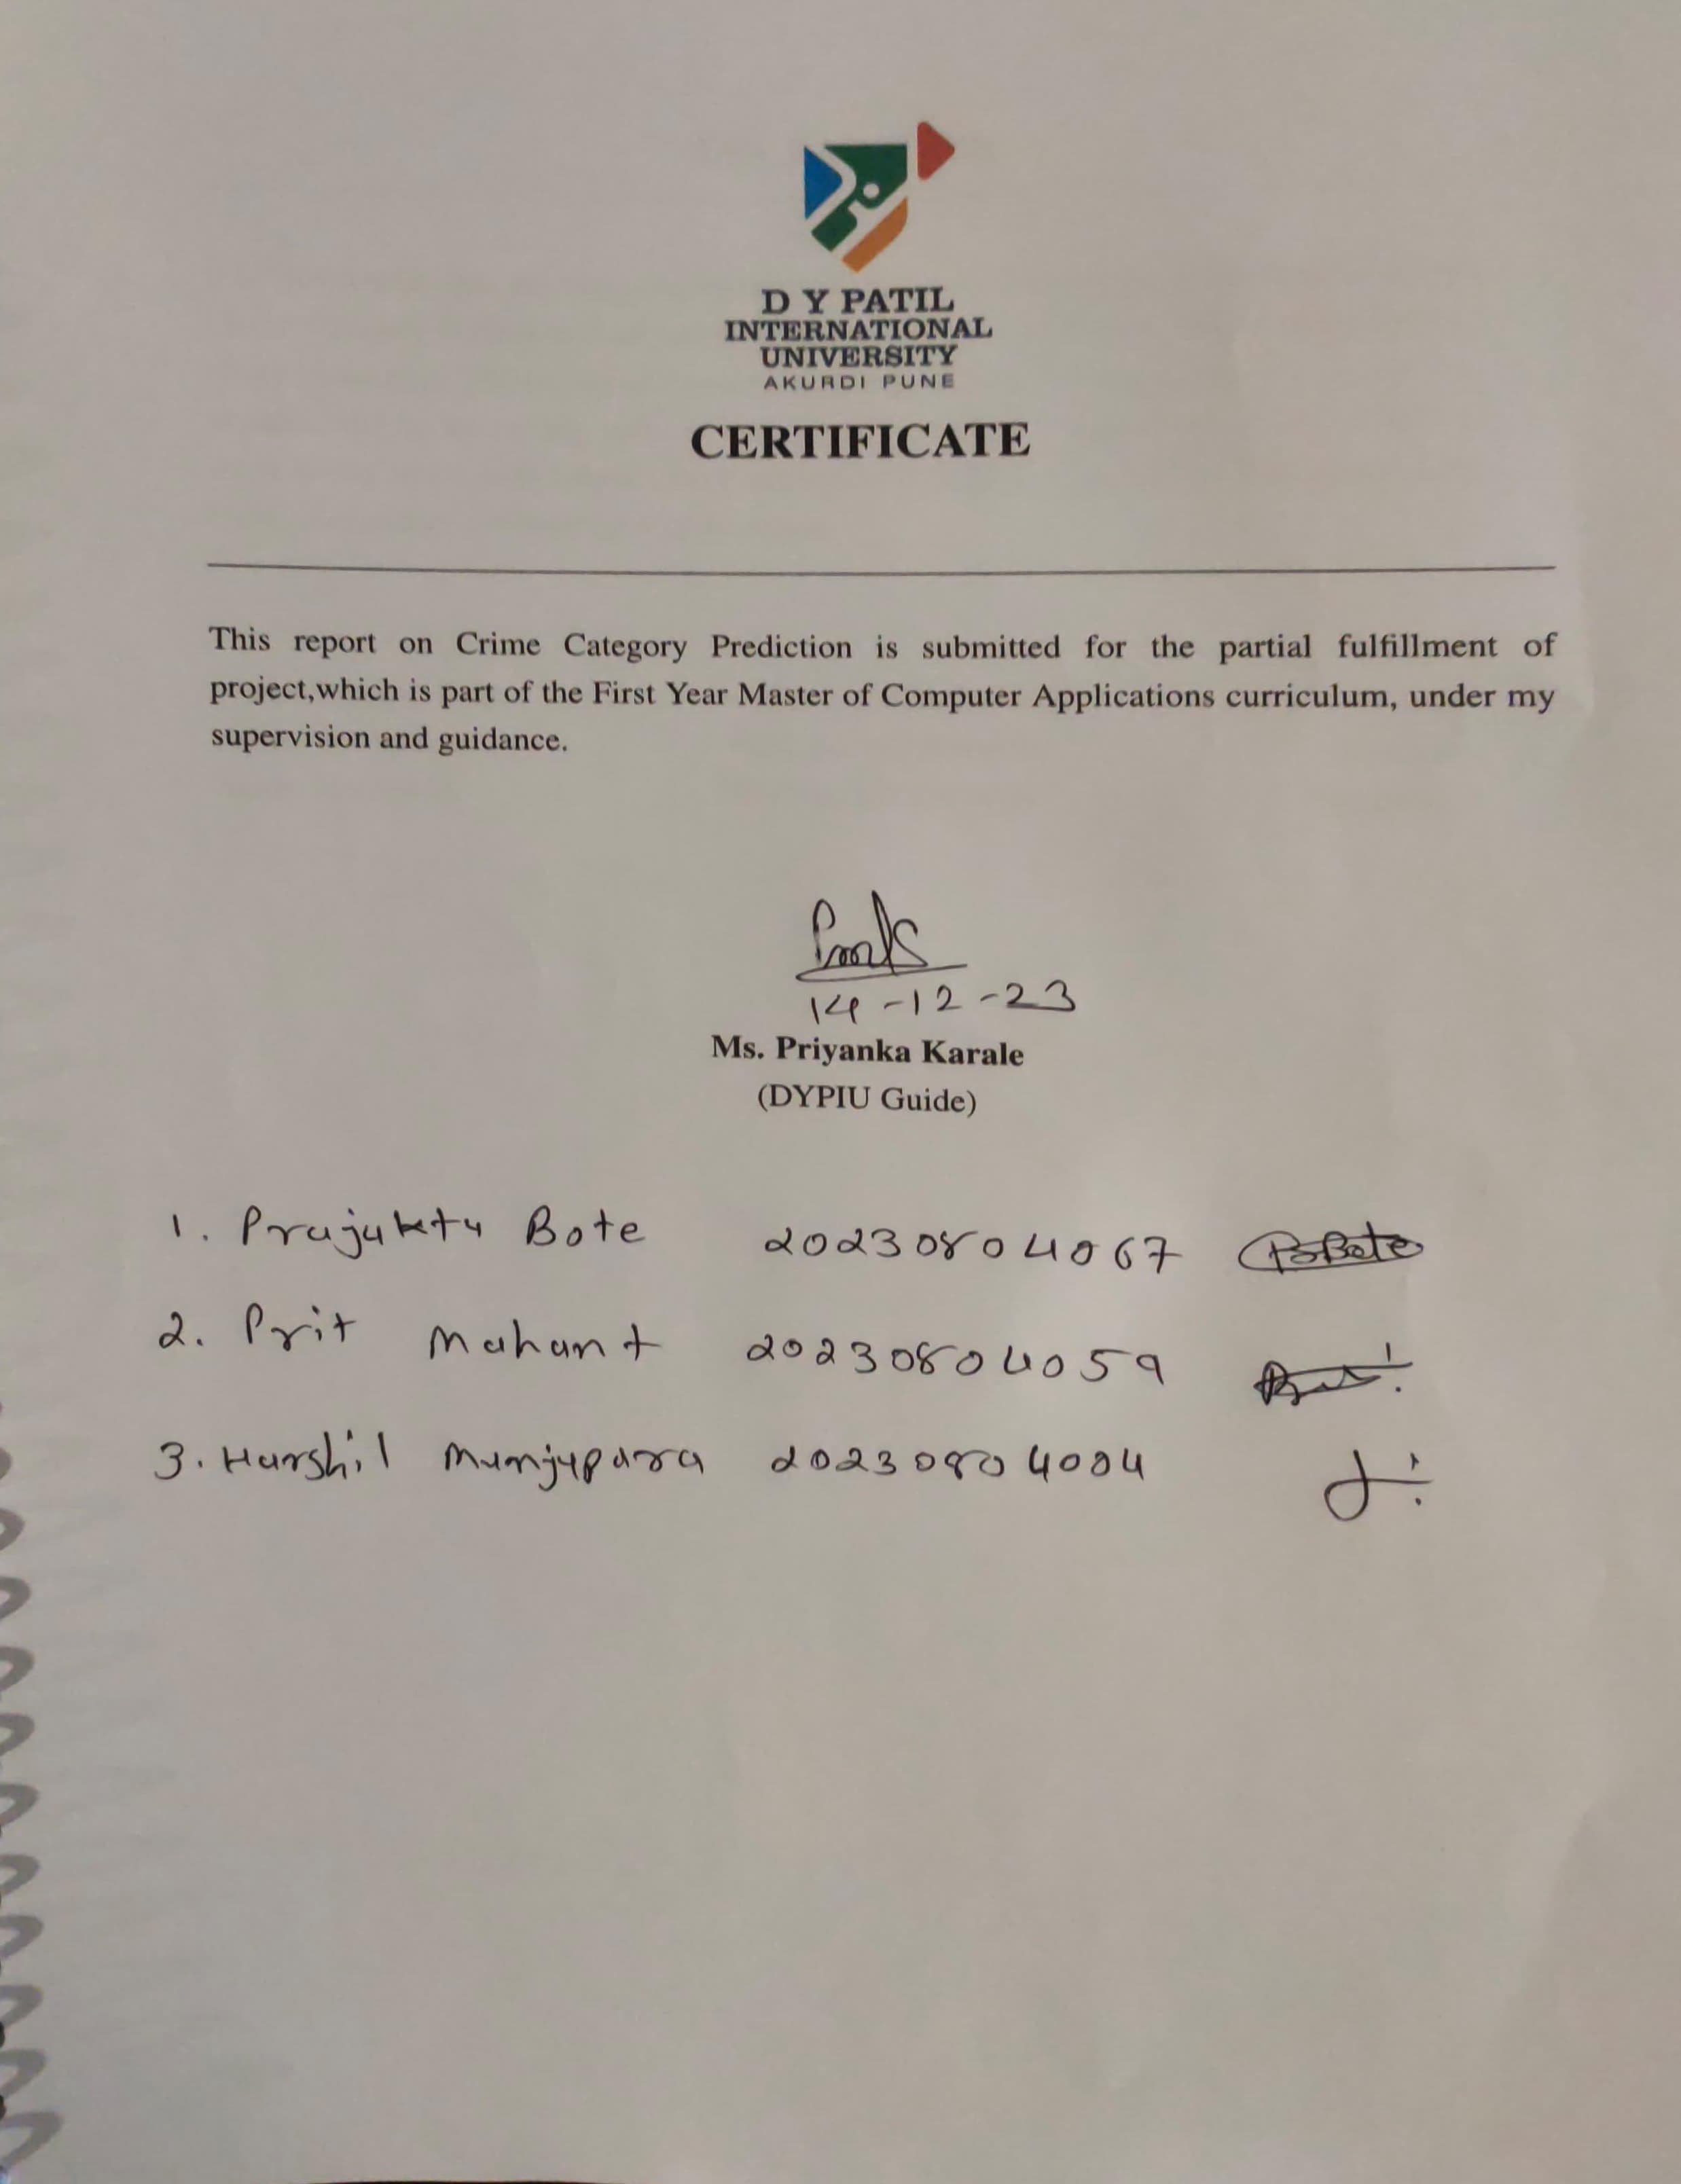 D Y PATIL
INTERNATIONAL
UNIVERSITY
AKURDI PUNE
CERTIFICATE
This report on Crime Category Prediction is submitted for the partial fulfillment of
project,which is part of the First Year Master of Computer Applications curriculum, under my
supervision and guidance.
14-12-23
Ms. Priyanka Karale
(DYPIU Guide)
1. Prajakta Bote 20230804067 PBBote
2. Prit Mahant 20230804059
3. Harshil Munjapara 20230804004